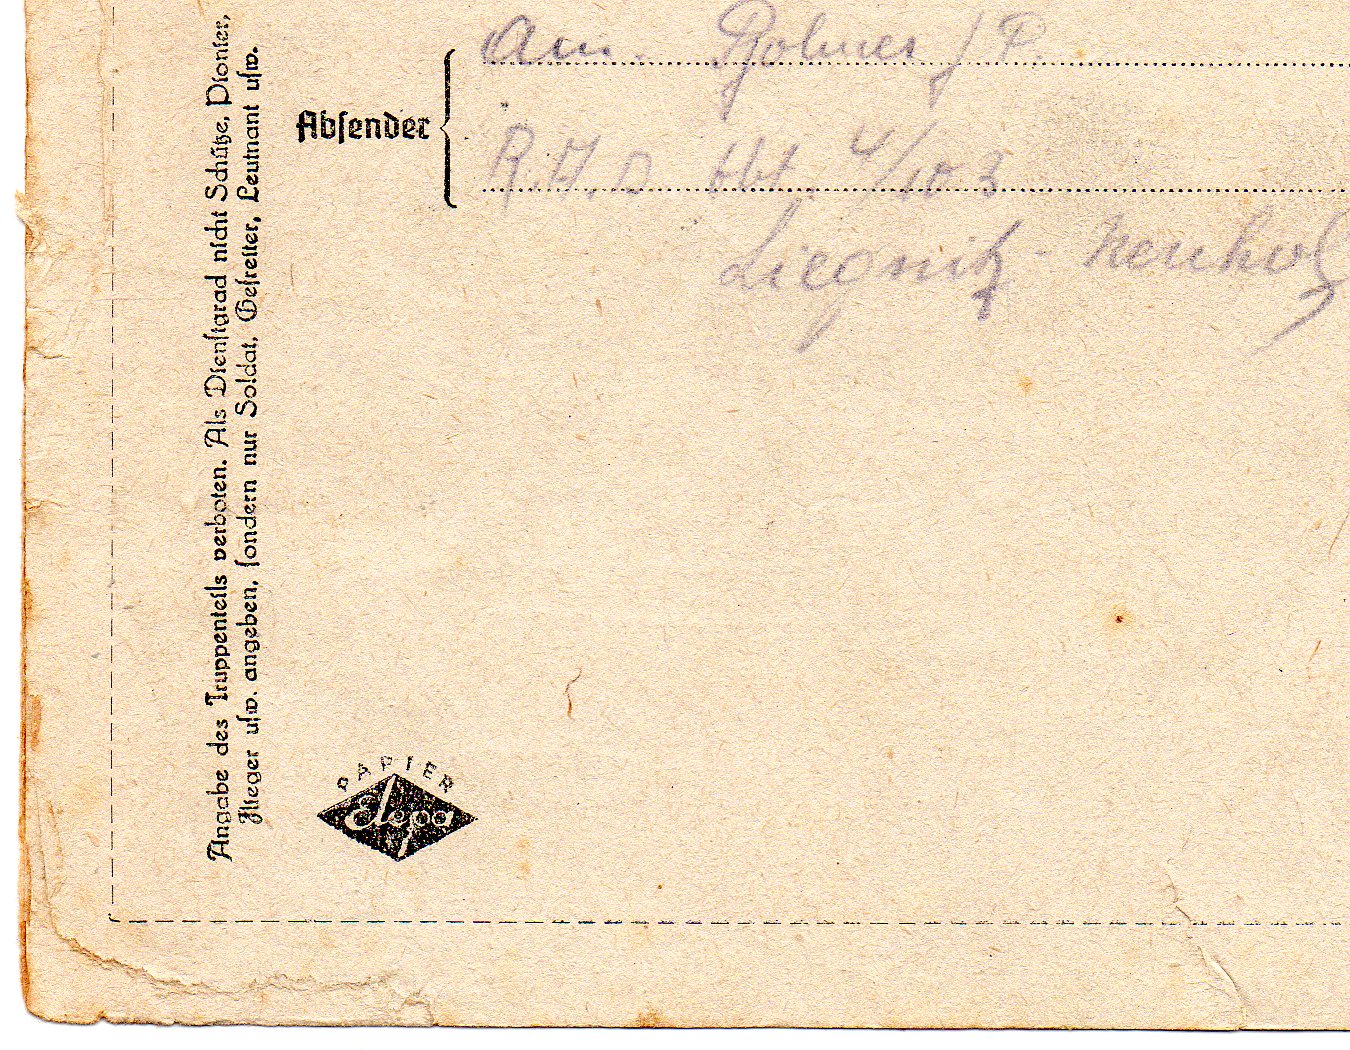 Am. Bohmer J P.
Absender
R.A.D. Abt. 4/103
Liegnitz-Neuhof
Angabe des Truppenteils verboten. Als Dienstgrad nicht Schütze, Pionier,
Flieger usw. angeben, sondern nur Soldat, Gefreiter, Leutnant usw.
PAPIER
Elepa